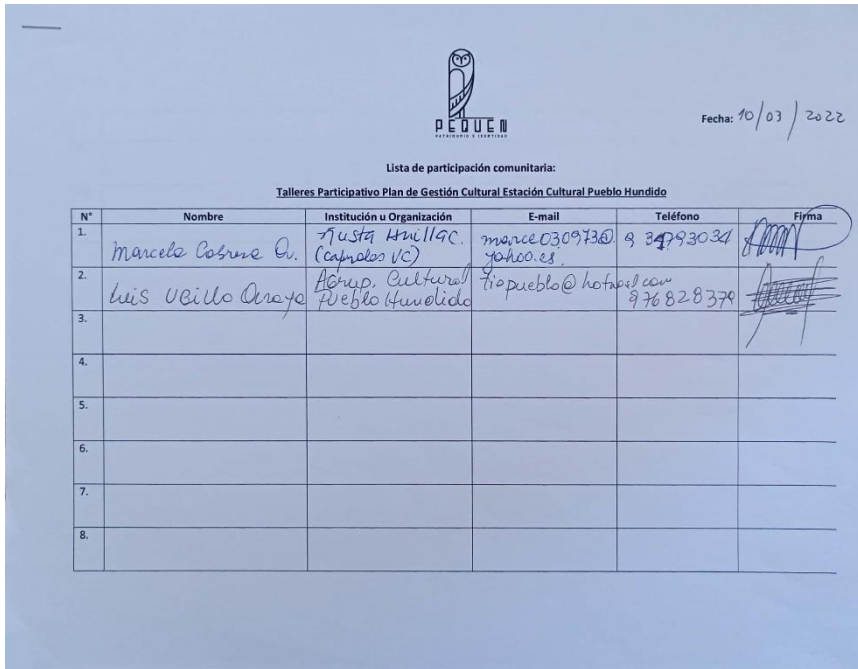 PEQUEN
PATRIMONIO E IDENTIDAD
Fecha: 10/03/2022
Lista de participación comunitaria:
Talleres Participativo Plan de Gestión Cultural Estación Cultural Pueblo Hundido
N° Nombre Institución u Organización E-mail Teléfono Firma
1. Marcela Cabrera Q. Ñusta Huillac. (caporales VC) marce030973@yahoo.es. 9 34793034
2. Luis Araya Agrup. Cultural Pueblo Hundido tiopueblo@hotmail.com 976828379
3.
4.
5.
6.
7.
8.